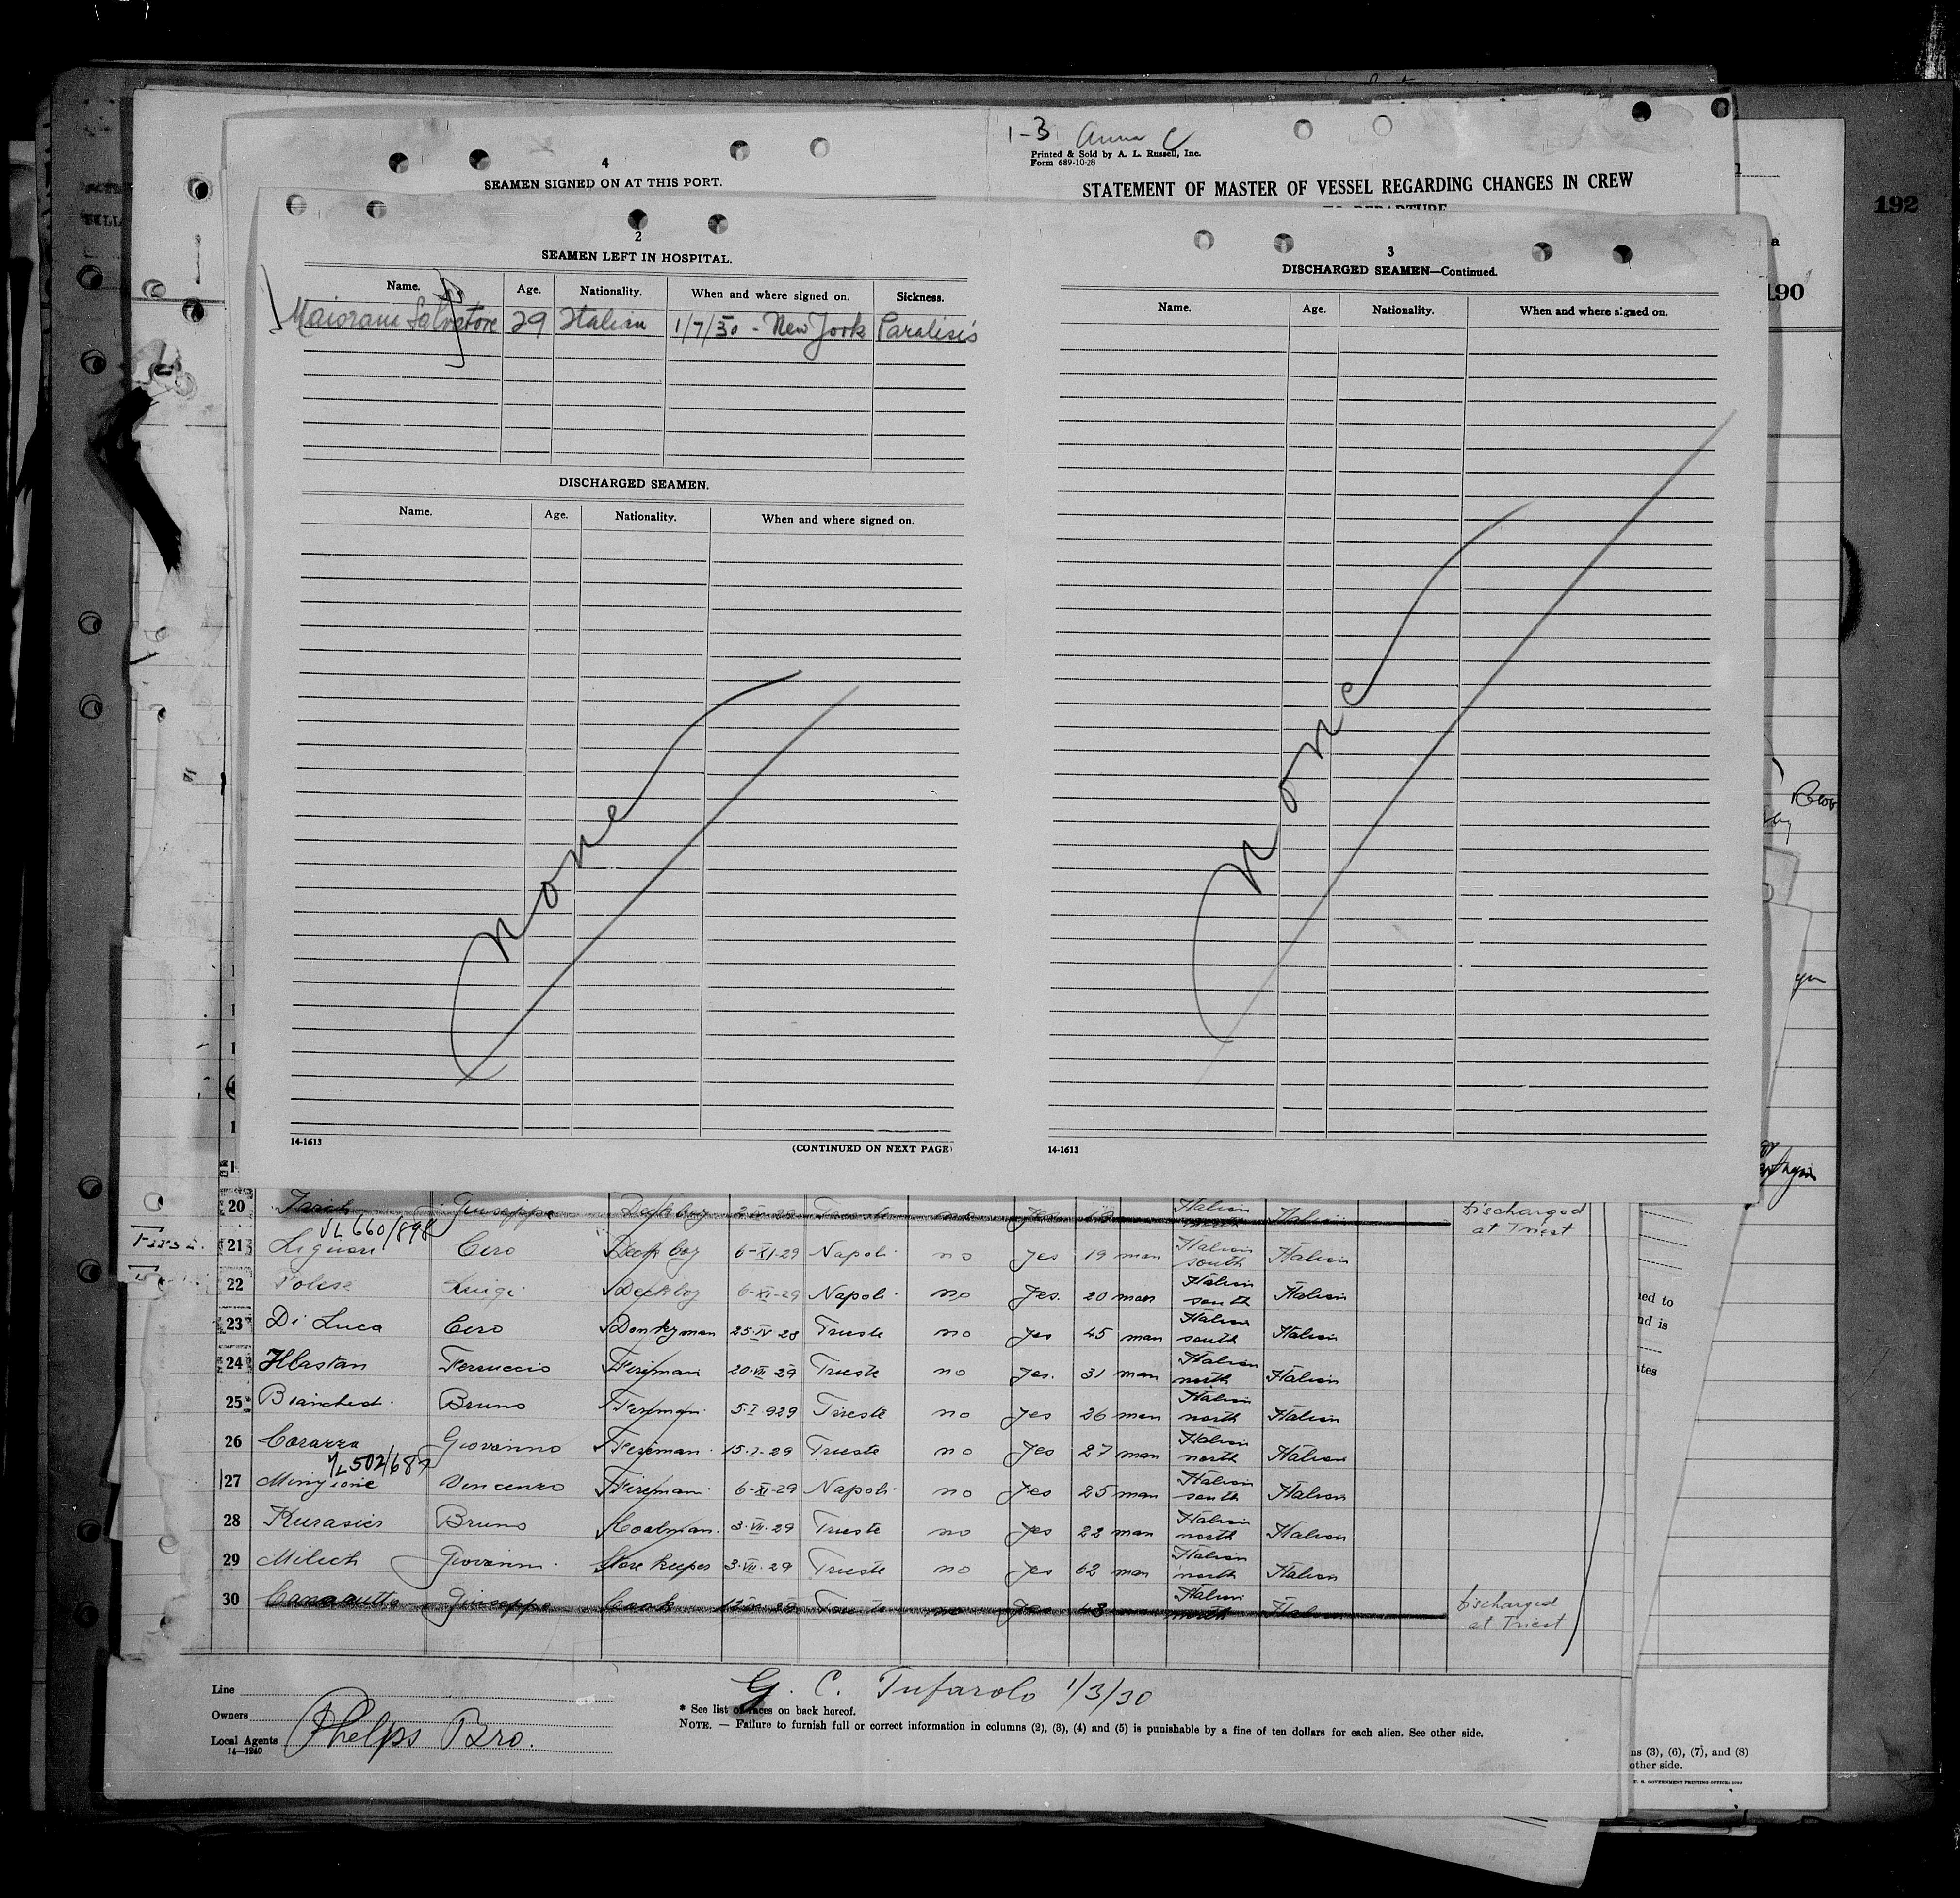 192
190
1-3 Anna C
Printed & Sold by A. L. Russell, Inc.
Form 689-10-28
4
SEAMEN SIGNED ON AT THIS PORT.
STATEMENT OF MASTER OF VESSEL REGARDING CHANGES IN CREW
TO DEPARTURE
2
SEAMEN LEFT IN HOSPITAL.
Name. Age. Nationality. When and where signed on. Sickness.
Maiorana Salvatore 29 Italian 1/7/30 - New York Paralisis
DISCHARGED SEAMEN.
Name. Age. Nationality. When and where signed on.
none
14-1613
(CONTINUED ON NEXT PAGE)
3
DISCHARGED SEAMEN—Continued.
Name. Age. Nationality. When and where signed on.
none
14-1613
20 Giuseppe Deckboy Trieste no Yes Italian north Italian Discharged at Triest
VL 660/898
21 Liguori Ciro Deck boy 6-XI-29 Napoli no yes 19 man Italian south Italian
22 Polese Luigi Deckboy 6-XI-29 Napoli no Yes. 20 man Italian south Italian
23 Di Luca Ciro Donkyman 25-IV 28 Trieste no yes 45 man Italian south Italian
24 Ferruccio Fireman 20-VII 29 Trieste no yes. 31 man Italian north Italian
25 Bruno Fireman 5-I-929 Trieste no yes 26 man Italian north Italian
26 Giovanno Fireman 15-I-29 Trieste no Yes 27 man Italian north Italian
VL 502/687
27 Mingione Vincenzo Fireman 6-XI-29 Napoli no Yes 25 man Italian south Italian
28 Bruno Coalman 3-VII-29 Trieste no yes 22 man Italian north Italian
29 Milich Giovanni Store keeper 3-VII-29 Trieste no yes 62 man Italian north Italian
30 Giuseppe Cook Trieste no yes 48 Italian north Italian Discharged at Triest
Line
Owners
Local Agents Phelps Bro.
14—1240
G. C. Tufarolo 1/3/30
* See list of races on back hereof.
NOTE. — Failure to furnish full or correct information in columns (2), (3), (4) and (5) is punishable by a fine of ten dollars for each alien. See other side.
ned to
nd is
ates
ns (3), (6), (7), and (8)
other side.
U. S. GOVERNMENT PRINTING OFFICE: